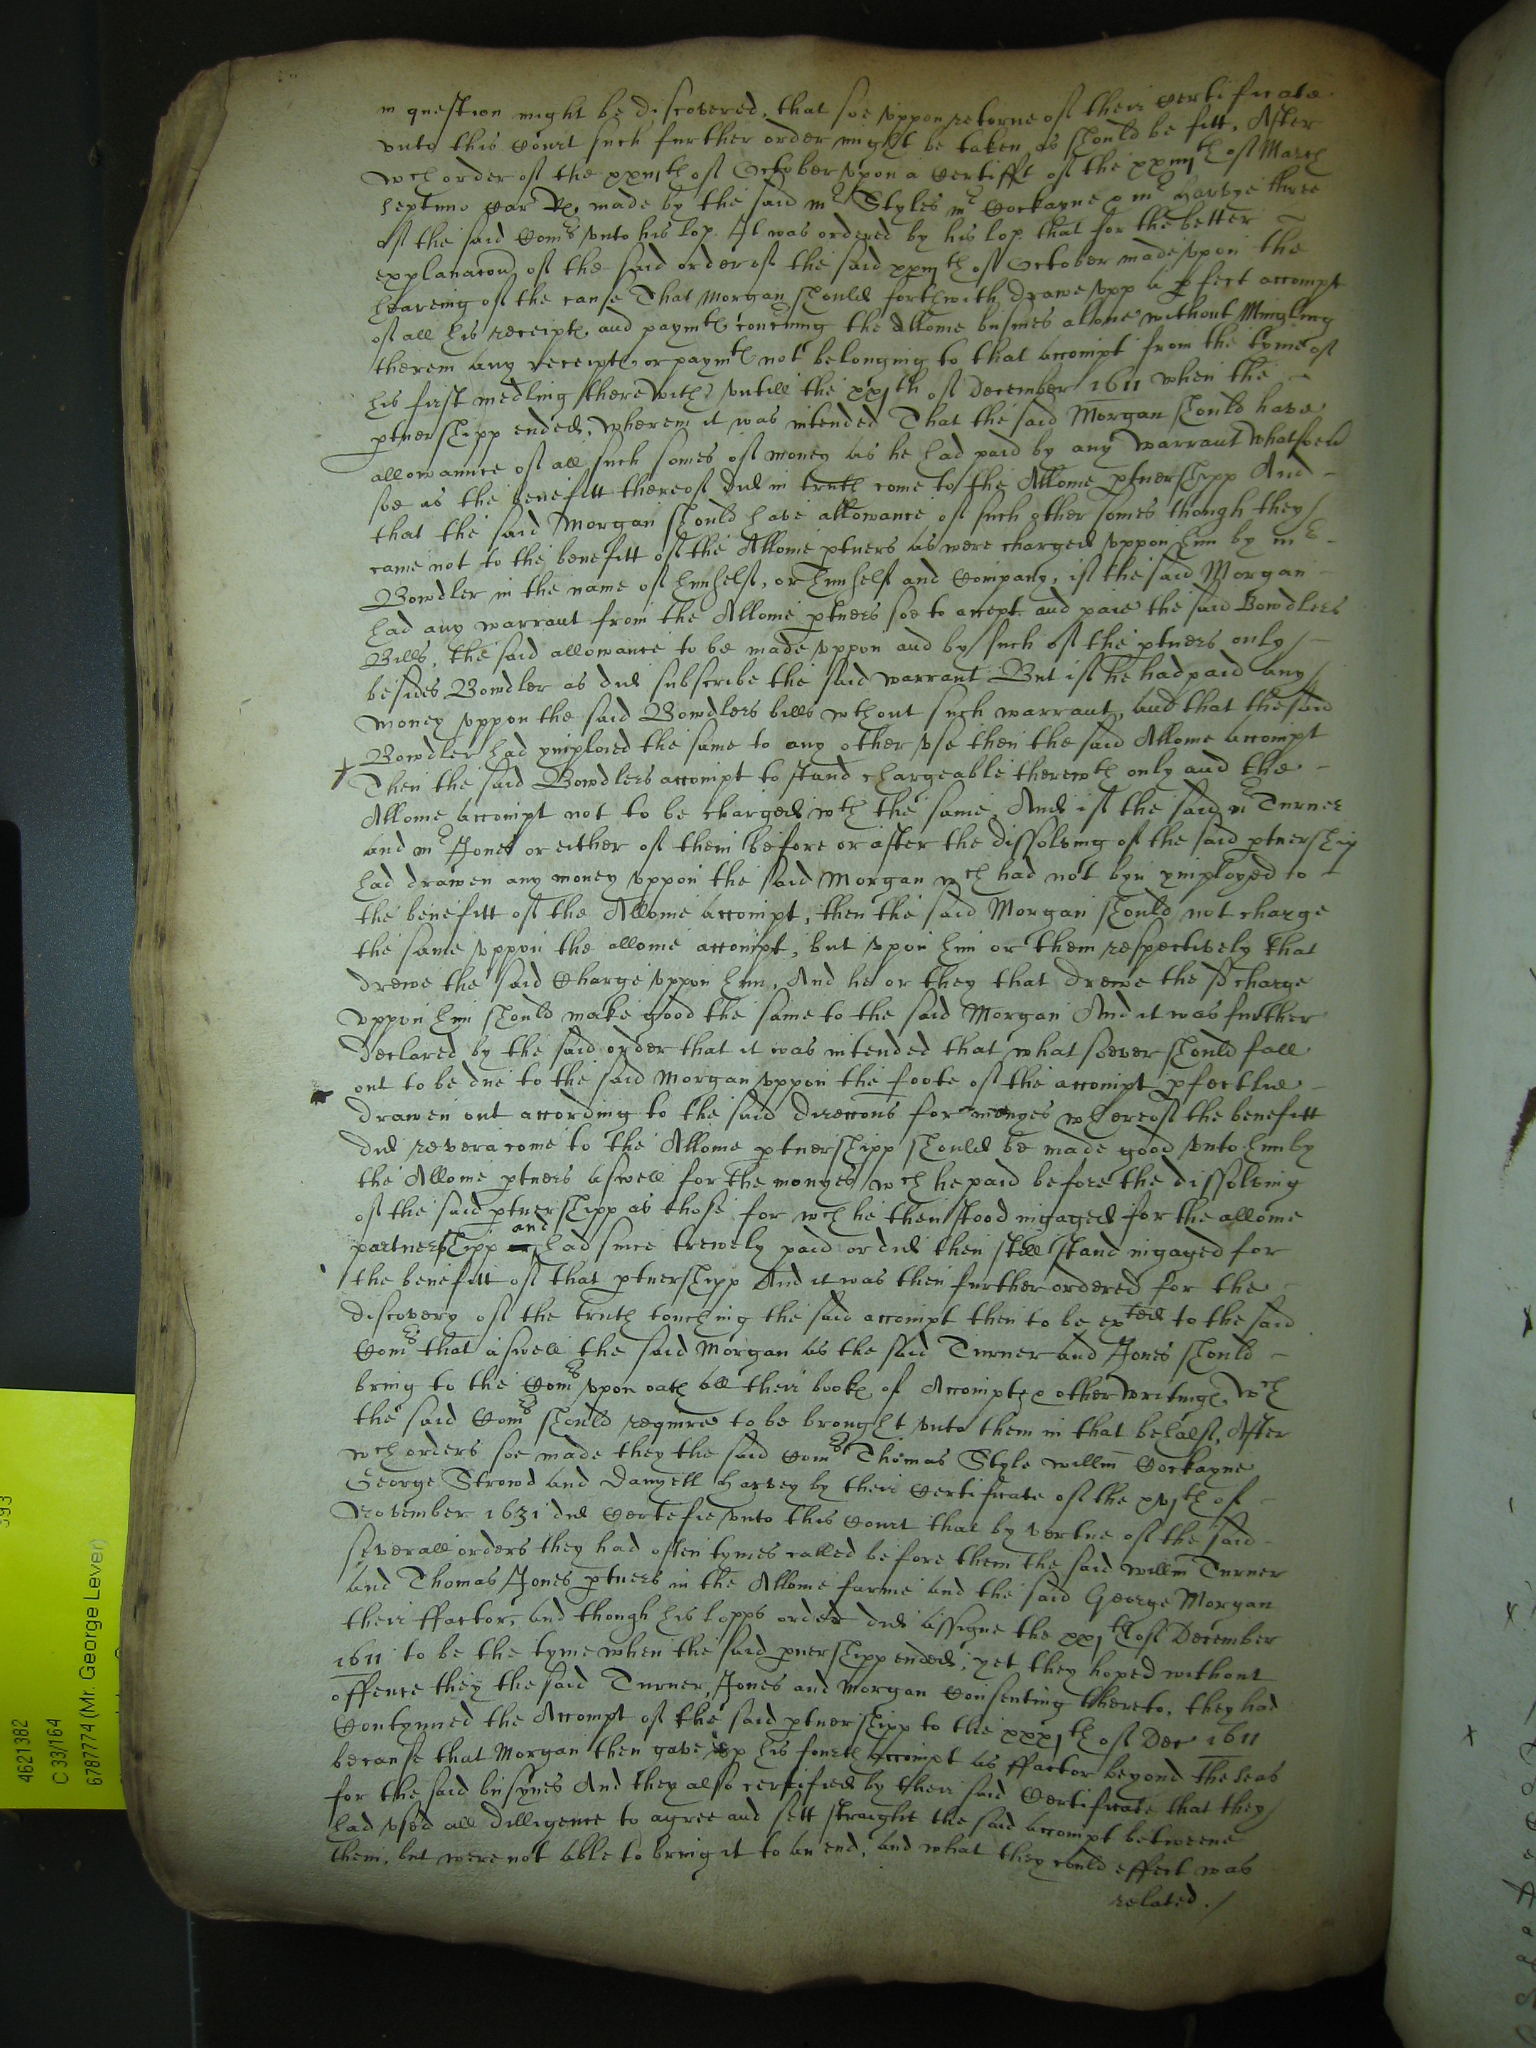 in question might be discovered, that soe vppon retorne of their Certificate
vnto this Court such further order might be taken as should be fitt, After
wch order of the xxiiijth of October vpon a Certifft of the xxiiijth of March
septimo Car Rx, made by the said mr Styles mr Cockayne & mr Harvye three
of the said Comrs vnto his lop. It was ordered by his lop. that for the better
explanacon of the said order of the said xxiiijth of October made vpon the
heareing of the cause That Morgan should forthwith drawe vpp a pfect accompt
of all his receipts and paymts concning the Allome busines alone without Mingling
therein any receipts or paymts not belonging to that accompt from the tyme of
his first medling therewith vntill the xxjth of December 1611 when the
ptnershipp ended, wherein it was intended That the said Morgan should have
allowannce of all such somes of money as he had paid by any warrant whatsoeu
soe as the benefitt thereof did in truth come to the Allome ptnershipp And
that the said Morgan should have allowance of such other somes though they
came not to the benefitt of the Allome ptners as were charged vppon him by mr
Bowdler in the name of himself, or himself and Company, if the said Morgan
had any warrant from the Allome ptners soe to accept and paie the said Bowdlers
Bills, the said allowance to be made vppon and by such of the ptners only
besides Bowdler as did subscribe the said warrant But if he had paid any
money vppon the said Bowdlers bills wthout such warrant, and that the said
Bowdler had ymploied the same to any other vse then the said Allome accompt
Then the said Bowdlers accompt to stand chargeable therewth only and the
Allome accompt not to be charged wth the same, And if the said mr Turner
and mr Jones or either of them before or after the dissolving of the said ptnership
had drawen any money vppon the said Morgan wch had not byn ymployed to
the benefitt of the Allome accompt, then the said Morgan should not charge
the same vppon the allome accompt, but vpon him or them respectively that
drewe the said Charge vppon him, And he or they that drewe the sd charge
vppon him should make good the same to the said Morgan And it was further
declared by the said order that it was intended that what soever should fall
out to be due to the said Morgan vppon the foote of the accompt pfectlie
drawen out according to the said direccons for monyes whereof the benefitt
did revera come to the Allome ptnershipp should be made good vnto him by
the Allome ptners aswell for the monyes wch he paid before the dissolving
of the said ptnershipp as those for wch he then stood ingaged for the allome
partnershipp and had since trewely paid or did then still stand ingaged for
the benefitt of that ptnershipp And it was then further ordered for the
discovery of the truth touching the said accompt then to be exted to the said
Comrs that aswell the said Morgan as the said Turner and Jones should
bring to the Comrs vpon oath all their books of Accompts & other writings wch
the said Comrs should require to be brought vnto them in that behalf, After
wch orders soe made they the said Comrs Thomas Style willm Cockayne
George Strowd and Danyell Harvey by their Certificate of the xvjth of
November 1631 did Certefie vnto this Court that by vertue of the said
severall orders they had often tymes called before them the said willm Turner
and Thomas Jones ptners in the Allome farme and the said George Morgan
their ffactor, and though his lopps order did assigne the xxjth of December
1611 to be the tyme when the said pnershipp ended, yet they hoped without
offence they the said Turner, Jones and Morgan Consenting thereto, they had
Contynued the Accompt of the said ptnershipp to the xxxjth of Dec 1611
because that Morgan then gave vp his fourth accompt as ffactor beyond The seas
for the said busynes And they also certified by their said Certificate that they
had vsed all dilligence to agree and sett straight the said accompt betweene
them, but were not able to bring it to an end, and what they could effect was
related ./
4621382
C 33/164
6787774 (Mr. George Lever)